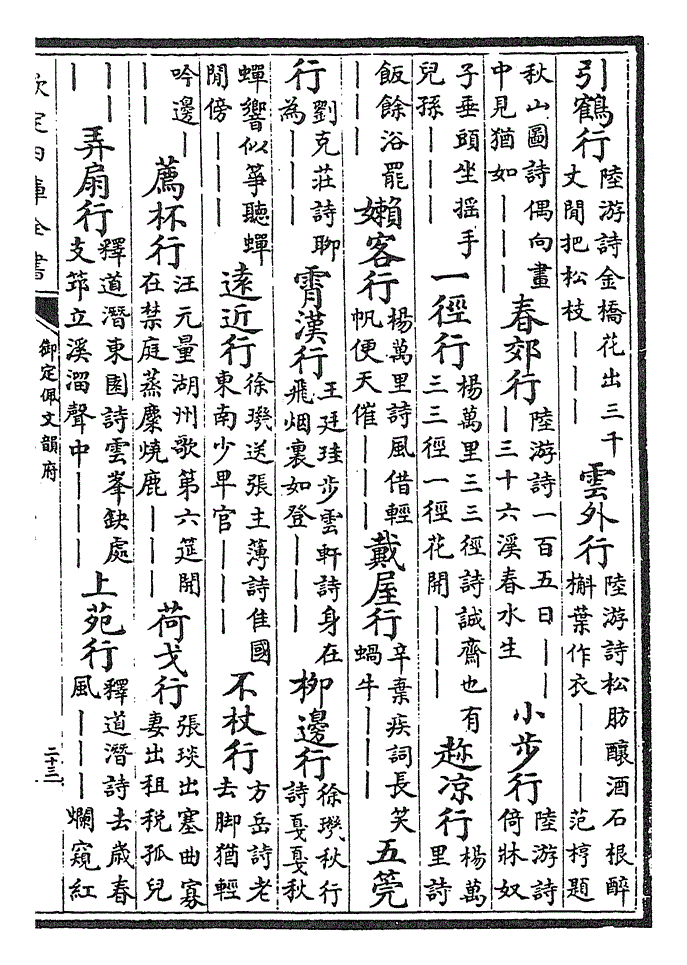 引鶴行陸游詩金橋花出三千丈閒把松枝｜｜｜雲外行陸游詩松肪釀酒石根醉槲葉作衣｜｜｜范梈題
秋山圖詩偶向畫中見猶如｜｜｜春郊行陸游詩一百五日｜｜｜三十六溪春水生小步行陸游詩倚牀奴
子垂頭坐摇手兒孫｜｜｜一徑行楊萬里三三徑詩誠齋也有三三徑一徑花開｜｜｜趂凉行楊萬里詩
飯餘浴罷｜｜｜嬾客行楊萬里詩風借輕帆便天催｜｜｜戴屋行辛棄疾詞長笑蝸牛｜｜｜五筦
行劉克莊詩聊為｜｜｜霄漢行王廷珪步雲軒詩身在飛烟裏如登｜｜｜栁邊行徐璣秋行詩戛戛秋
蟬響似箏聽蟬閒傍｜｜｜遠近行徐璣送張主簿詩隹國東南少早官｜｜｜不杖行方岳詩老去脚猶輕
吟邊｜｜｜薦杯行汪元量湖州歌第六筵開在禁庭蒸麋燒鹿｜｜｜荷戈行張琰出塞曲寡妻出租税孤兒
｜｜｜弄扇行釋道潛東園詩雲峯缺處支筇立溪溜聲中｜｜｜上苑行釋道潛詩去歲春風｜｜｜爛窺紅
欽定四庫全書
御定佩文韻府
二十三